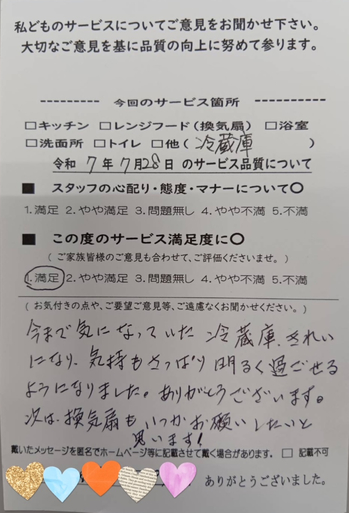 私どものサービスについてご意見をお聞かせ下さい。
大切なご意見を基に品質の向上に努めて参ります。
今回のサービス箇所
□キッチン □レンジフード(換気扇) □浴室
□洗面所 □トイレ □他(冷蔵庫)
令和 7年 7月28日 のサービス品質について
■ スタッフの心配り・態度・マナーについて〇
1.満足 2.やや満足 3.問題無し 4.やや不満 5.不満
■ この度のサービス満足度に〇
(ご家族皆様のご意見も合わせて、ご評価くださいませ。)
1.満足 2.やや満足 3.問題無し 4.やや不満 5.不満
(お気付きの点や、ご要望ご意見等、ご遠慮なくお聞かせください。)
今まで気になっていた 冷蔵庫、きれい
になり、気持もさっぱり 明るく過ごせる
ようになりました。ありがとうございます。
次は、換気扇も いつかお願いしたいと
思います!
戴いたメッセージを匿名でホームページ等に記載させて戴く場合があります。 □ 記載不可
ありがとうございました。